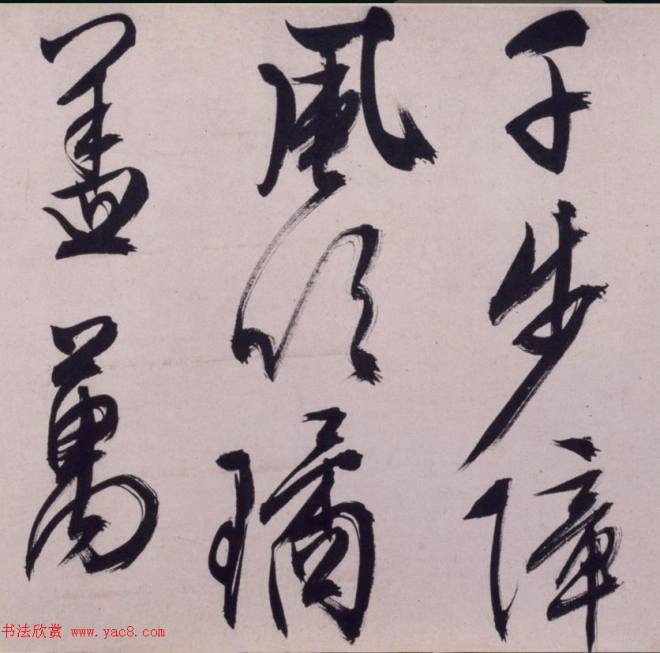 千步障
風以璚
蓋萬
书法欣赏 www.yac8.com